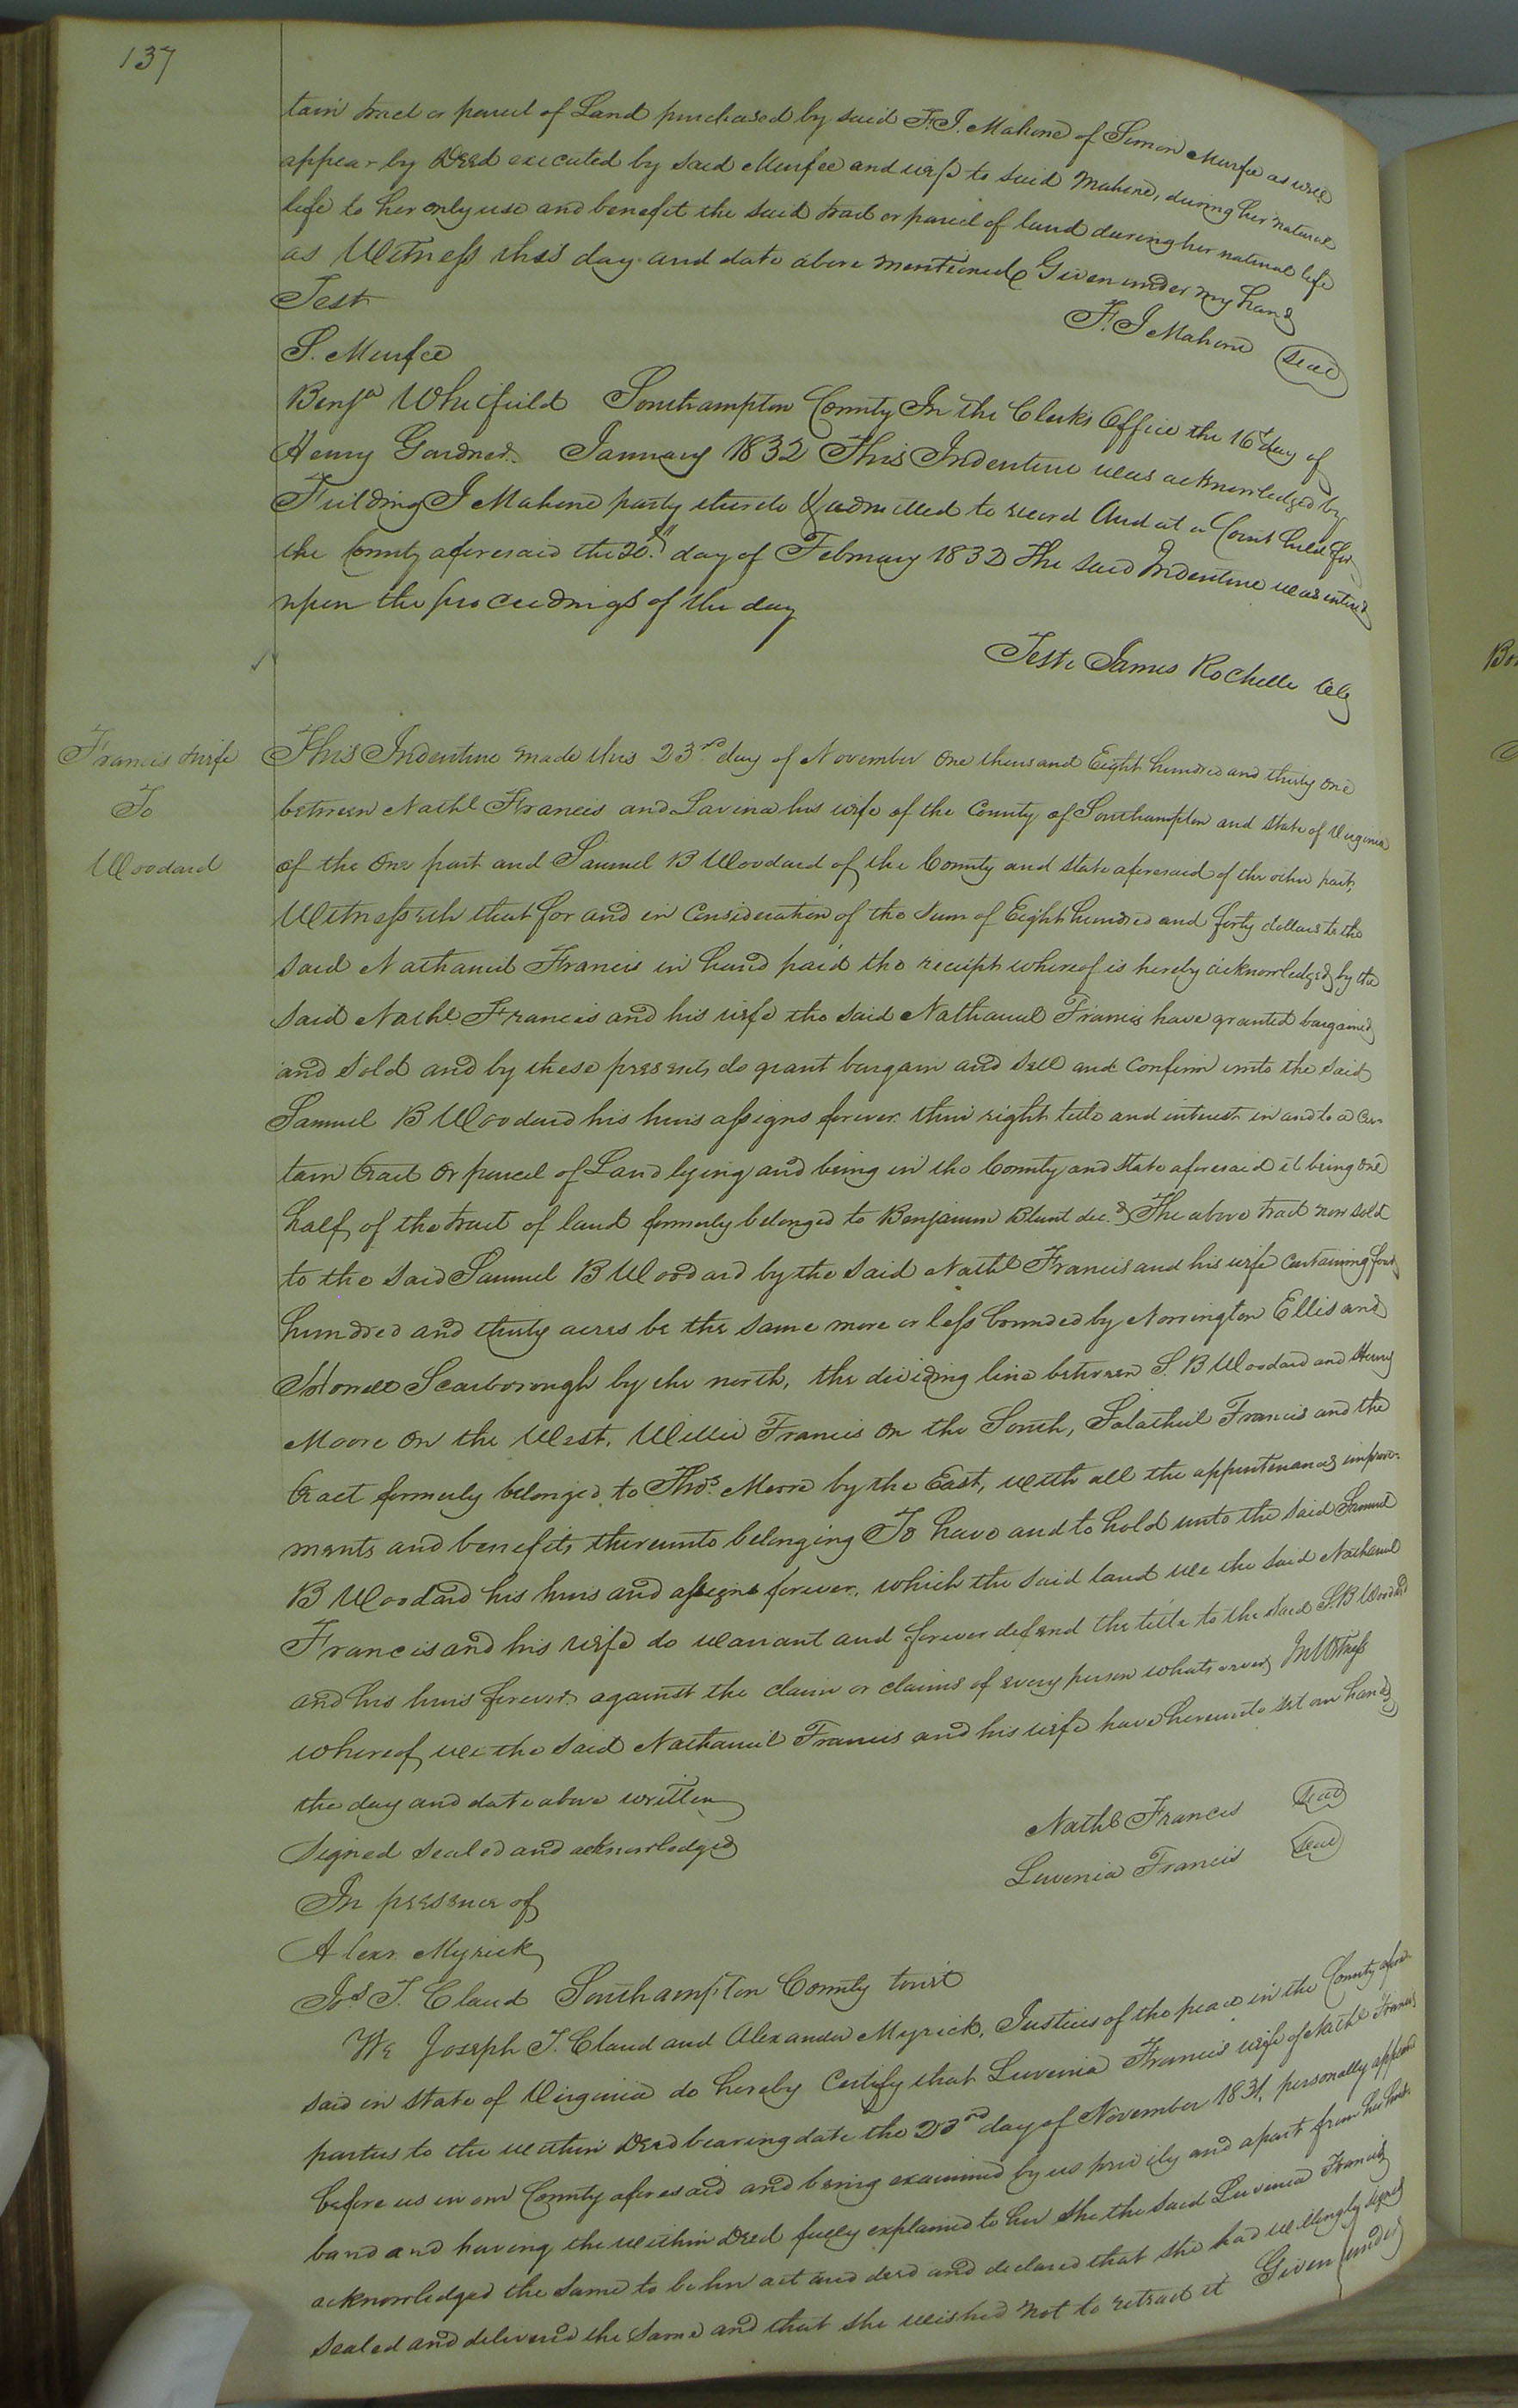 137
tain tract or parcel of Land purchased by said F. J. Mahone of Simon Murfee as will
appear by Deed executed by said Murfee and wife to said Mahone, during her natural
life to her only use and benefit the said tract or parcel of land during her natural life
as Witness this day and date above mentioned Given under my hand
Test
F. J Mahone Seal
S. Murfee
Benja Whitfield Southampton County In the Clerks Office the 16th day of
Henry Gardner January 1832 This Indenture was acknowledged by
Fielding J Mahone party thereto & admitted to record And at a Court held for
the County aforesaid the 20th day of February 1832 The said Indenture was entered
upon the proceedings of the day
Teste James Rochelle Clk
Francis & wife
To
Woodard
This Indenture made this 23rd day of November One thousand Eight hundred and thirty one
between Nathl Francis and Lavina his wife of the County of Southampton and State of Virginia
of the One part and Samuel B Woodard of the County and State aforesaid of the other part,
Witnesseth that for and in Consideration of the Sum of Eight hundred and forty dollars to the
said Nathaniel Francis in hand paid the receipt whereof is hereby acknowledged by the
said Nathl Francis and his wife the said Nathaniel Francis have granted bargained
and sold and by these presents do grant bargain and sell and Confirm unto the said
Samuel B Woodard his heirs assigns forever their right title and interest in and to a Cer-
tain tract or parcel of Land lying and being in the County and State aforesaid it being One
half of the tract of land formerly belonged to Benjamin Blunt decd The above tract now sold
to the said Samuel B Woodard by the said Nathl Francis and his wife Containing four
hundred and thirty acres be the same more or less bounded by Norrington Ellis and
Howell Scarborough by the north, the dividing line between S. B Woodard and Henry
Moore on the West, Willie Francis on the South, Salathiel Francis and the
tract formerly belonged to Thos. Moore by the East, with all the appurtenances improve-
ments and benefits thereunto belonging To have and to hold unto the said Samuel
B Woodard his heirs and assigns forever, which the said land we the said Nathaniel
Francis and his wife do warrant and forever defend the title to the said S. B Woodard
and his heirs forever against the claim or claims of every person whatsoever In Witness
whereof we the said Nathaniel Francis and his wife have hereunto set our hands
the day and date above written
Nathl Francis Seal
Signed sealed and acknowledged
Luvenia Francis Seal
In presence of
Alexr. Myrick
Jos T. Claud Southampton County towit
We Joseph T. Claud and Alexander Myrick, Justices of the peace in the County afore-
said in State of Virginia do hereby Certify that Luvenia Francis wife of Nathl Francis
parties to the within Deed bearing date the 23rd day of November 1831, personally appeared
before us in our County aforesaid and being examined by us privily and apart from her hus-
band and having the within Deed fully explained to her she the said Luvenia Francis
acknowledged the same to be her act and deed and declared that she had willingly signed
sealed and delivered the same and that she wished not to retract it Given under